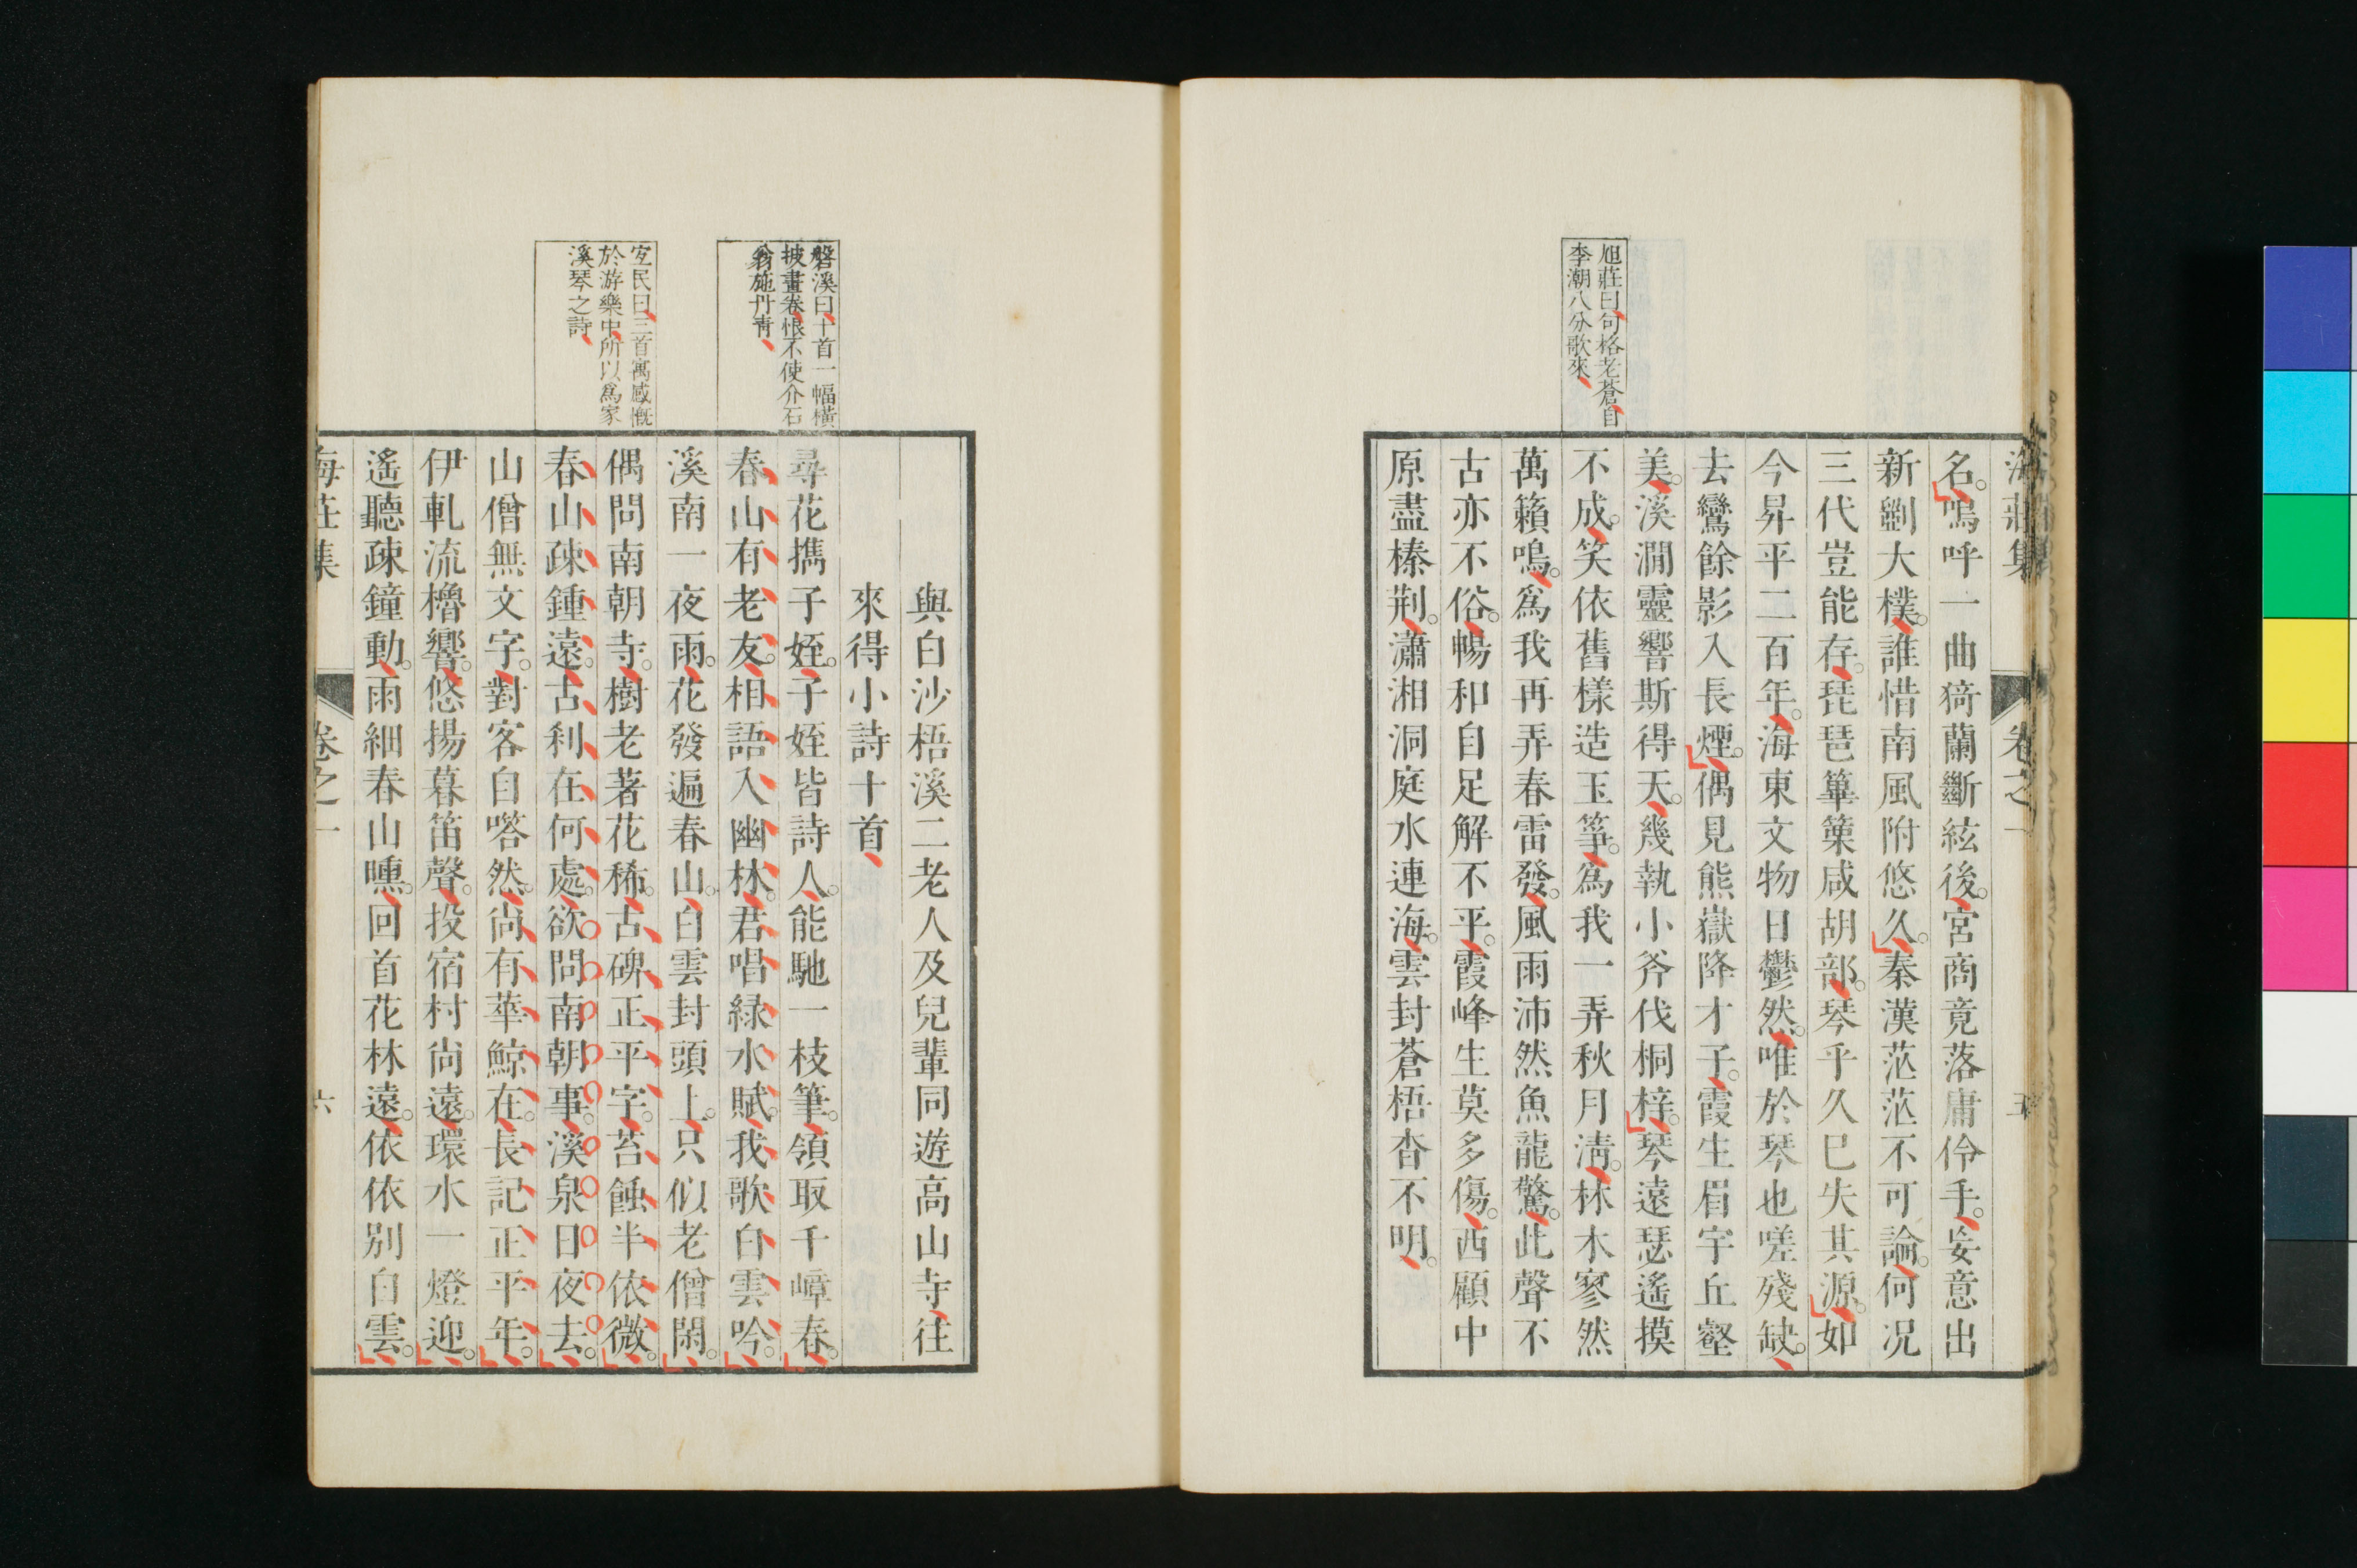 旭莊曰句格老蒼自
李潮八分歌來
海莊集 卷之一 五
名。嗚呼一曲猗蘭斷絃後。宮商竟落庸伶手。妄意出
新劖大樸。誰惜南風附悠久。秦漢茫茫不可論。何况
三代豈能存。琵琶篳篥咸胡部。琴乎久巳失其源。如
今昇平二百年。海東文物日鬱然。唯於琴也嗟殘缺。
去鸞餘影入長煙。偶見熊嶽降才子。霞生眉宇丘壑
美。溪澗靈響斯得天。幾執小斧伐桐梓。琴遠瑟遙摸
不成。笑依舊樣造玉箏。爲我一弄秋月淸。林木寥然
萬籟鳴。爲我再弄春雷發。風雨沛然魚龍驚。此聲不
古亦不俗。暢和自足解不平。霞峰生莫多傷。西顧中
原盡榛荆。瀟湘洞庭水連海。雲封蒼梧杳不明。
磐溪曰十首一幅橫
披畫卷恨不使介石
翁施丹靑
宖民曰三首寓感慨
於游樂中所以爲家
溪琴之詩
與白沙梧溪二老人及兒輩同遊高山寺往
來得小詩十首
尋花携子姪。子姪皆詩人。能馳一枝筆。領取千嶂春。
春山有老友。相語入幽林。君唱緑水賦。我歌白雲吟。
溪南一夜雨。花發遍春山。白雲封頭上。只似老僧閑。
偶問南朝寺。樹老著花稀。古碑正平字。苔蝕半依微。
春山疎鍾遠。古刹在何處。欲問南朝事。溪泉日夜去。
山僧無文字。對客自嗒然。尚有華鯨在。長記正平年。
伊軋流櫓響。悠揚暮笛聲。投宿村尚遠。環水一燈迎。
遙聽疎鐘動。雨細春山曛。回首花林遠。依依別白雲。
海莊集 卷之一 六